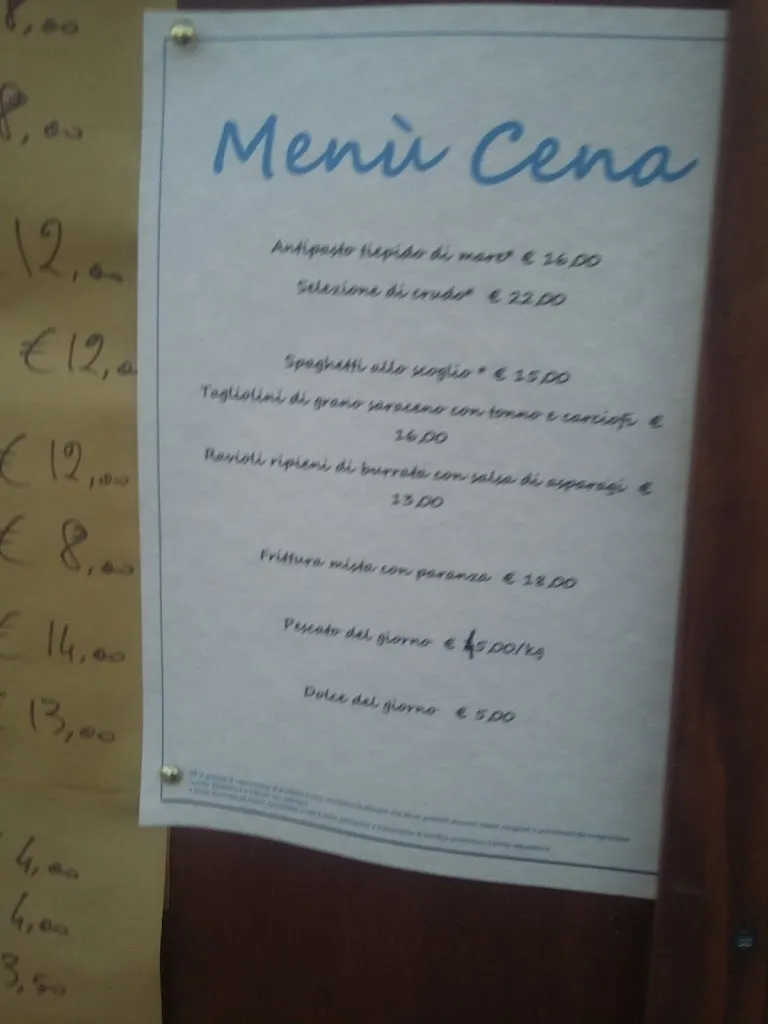 8,00
8,00
12,00
€ 12,0
€ 12,00
€ 8,00
€ 14,00
€ 13,00
4,00
4,00
3,50
Menù Cena
Antipasto tiepido di mare* € 16,00
Selezione di crudo* € 22,00
Spaghetti allo scoglio * € 15,00
Tagliolini di grano saraceno con tonno e carciofi €
16,00
Ravioli ripieni di burrata con salsa di asparagi €
13,00
Frittura mista con paranza € 18,00
Pescato del giorno € 45,00/kg
Dolce del giorno € 5,00